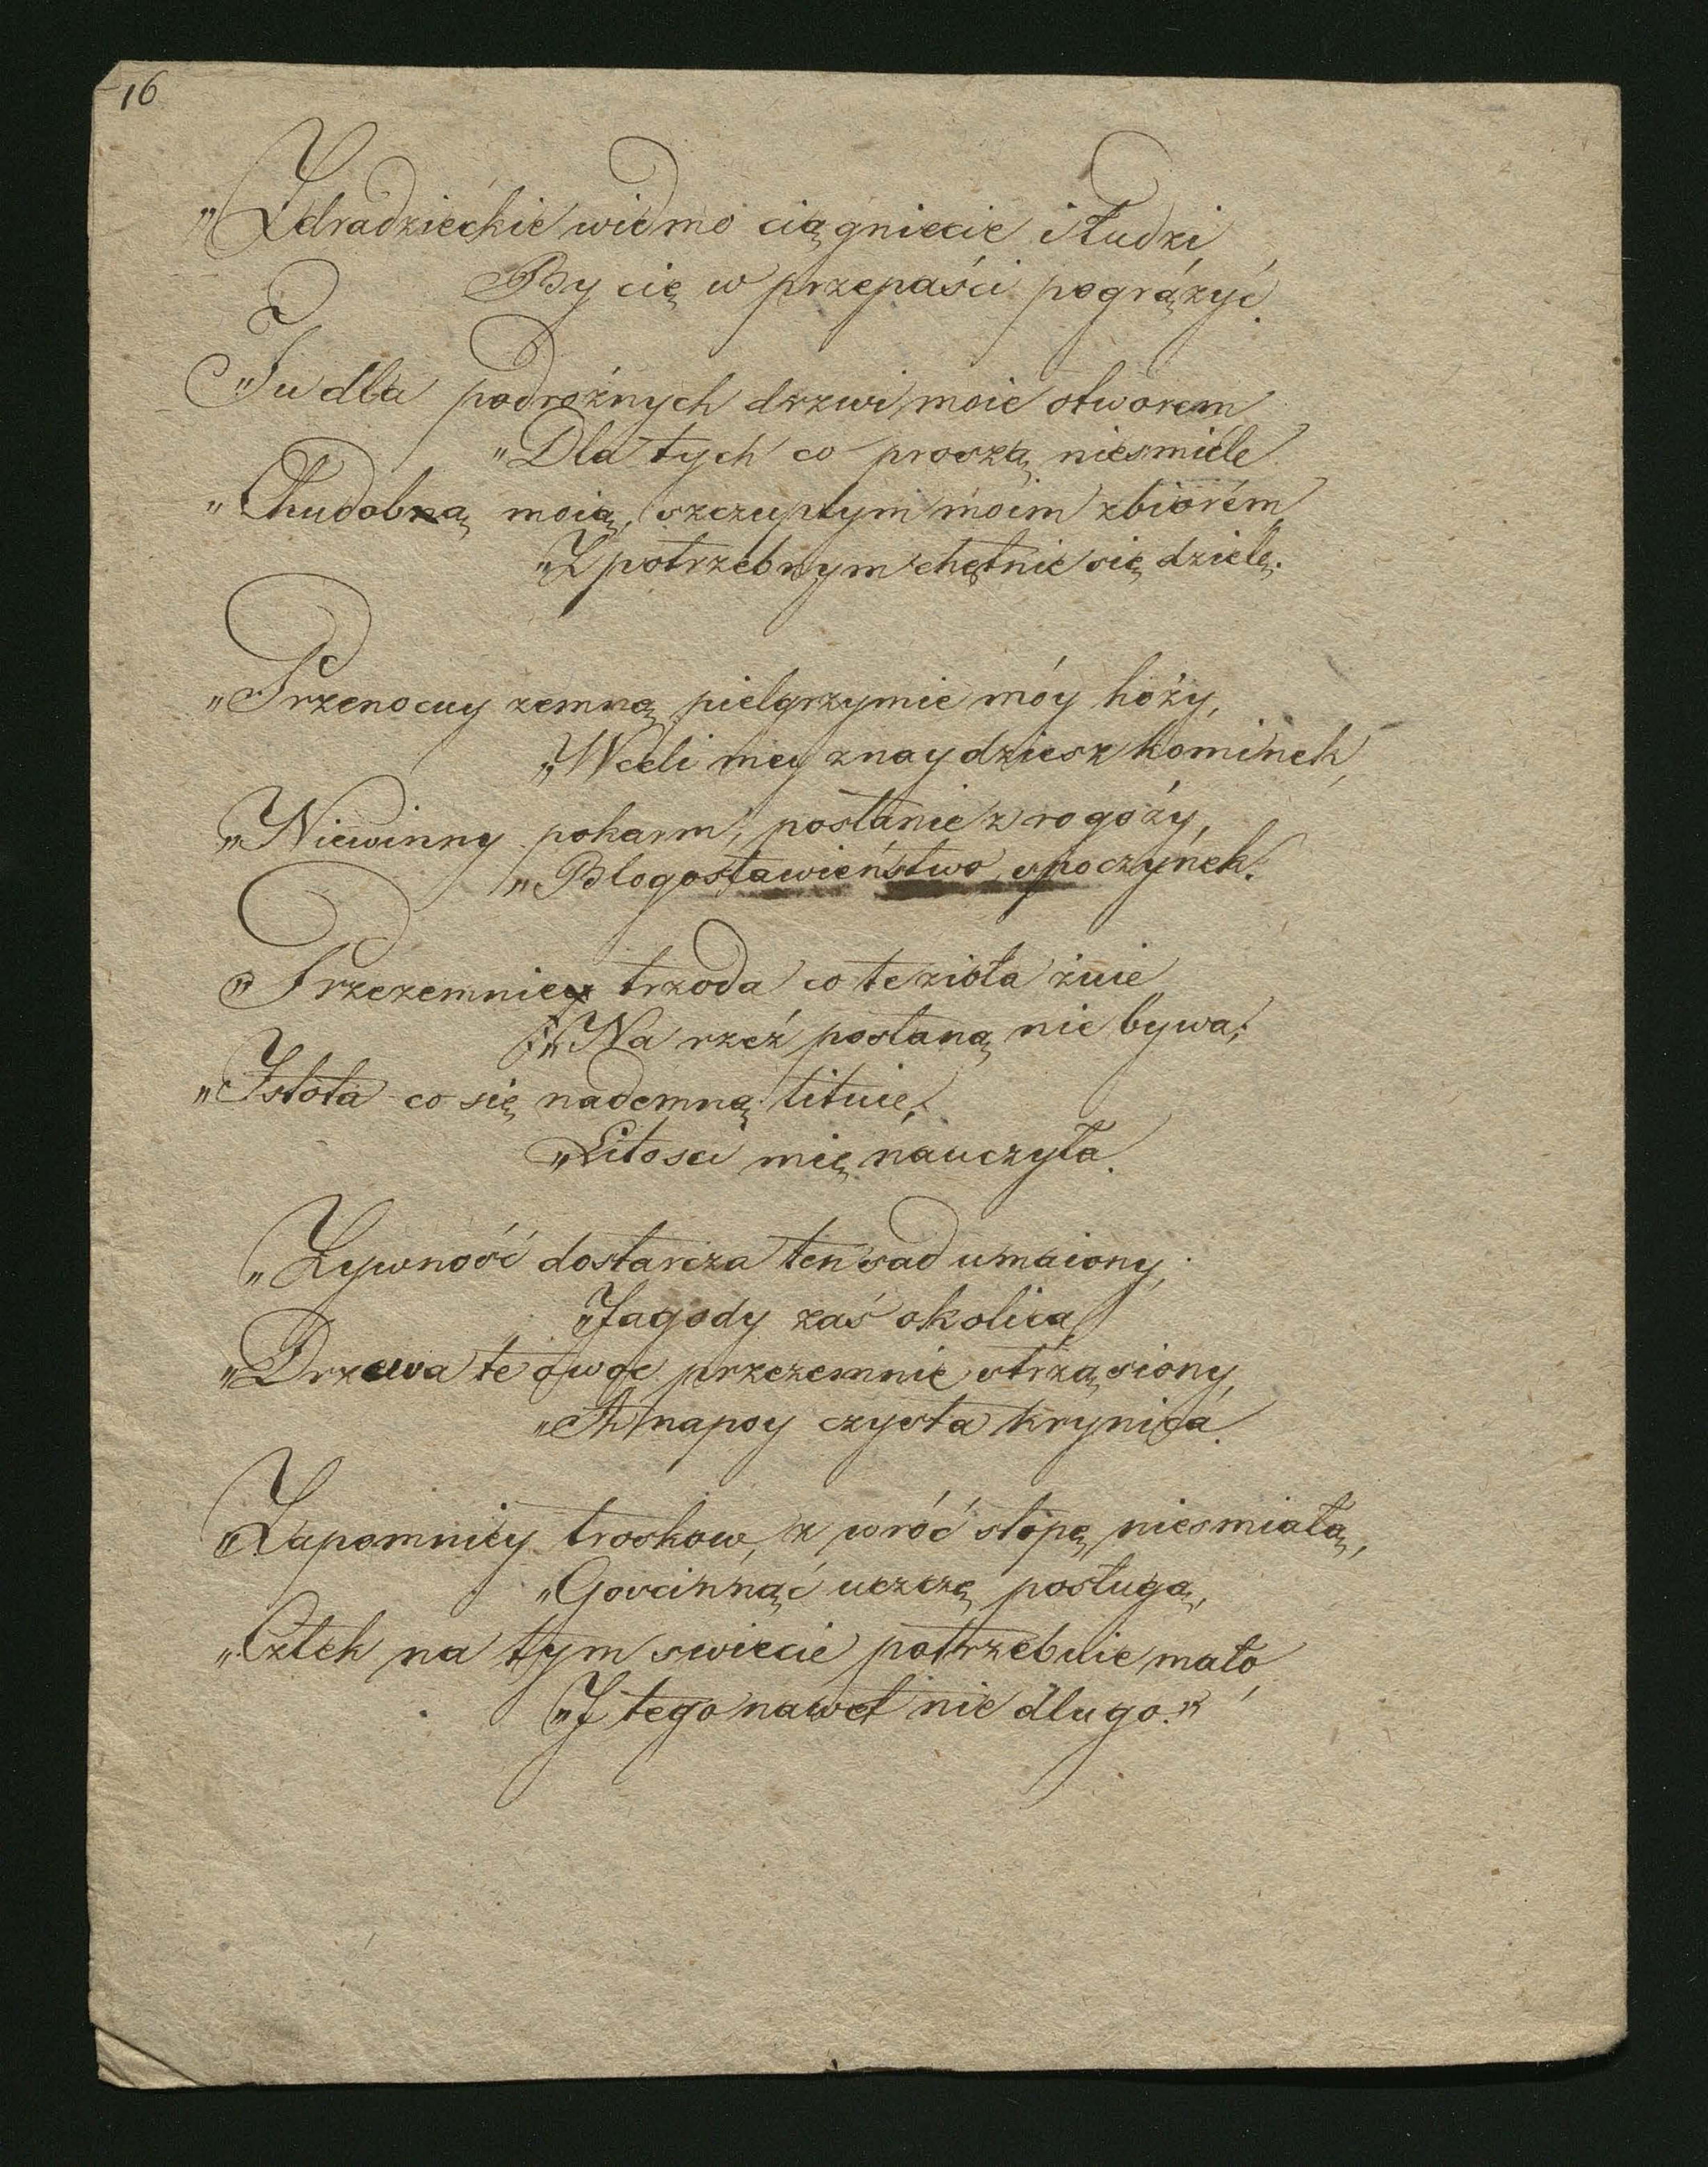 16
„Zdradzieckie widmo ciągniecie i łudzi,
By cię w przepaści pogrążyć.
„Tu dla podrożnych drzwi moie otworem
„Dla tych co proszą niesmiele
„Chudobną moią, szczupłym moim zbiorem
„Z potrzebnym chętnie się dzielę.
„Przenocuy zemną pielgrzymie móy hoży,
„W celi mey znaydziesz kominek,
„Niewinny pokarm, posłanie z rogoży,
„Blogosławieństwo, spoczynek.
„Przezemnie trzoda co te zioła żuie
„Na rzeź posłaną nie bywa;
„Istota co się nademną lituie,
„Litosci mię nauczyła.
„Zywność dostarcza ten sad umaiony,
„Jagody zaś okolica
„Drzewa te owoc przezemnie strząsiony,
„A napoy czysta krynica.
„Zapomniey troskow, z wróć stopę niesmiałą,
„Goscinnąć uczczę posługą,
„Człek na tym swiecie potrzebuie mało,
„I tego nawet nie długo.”